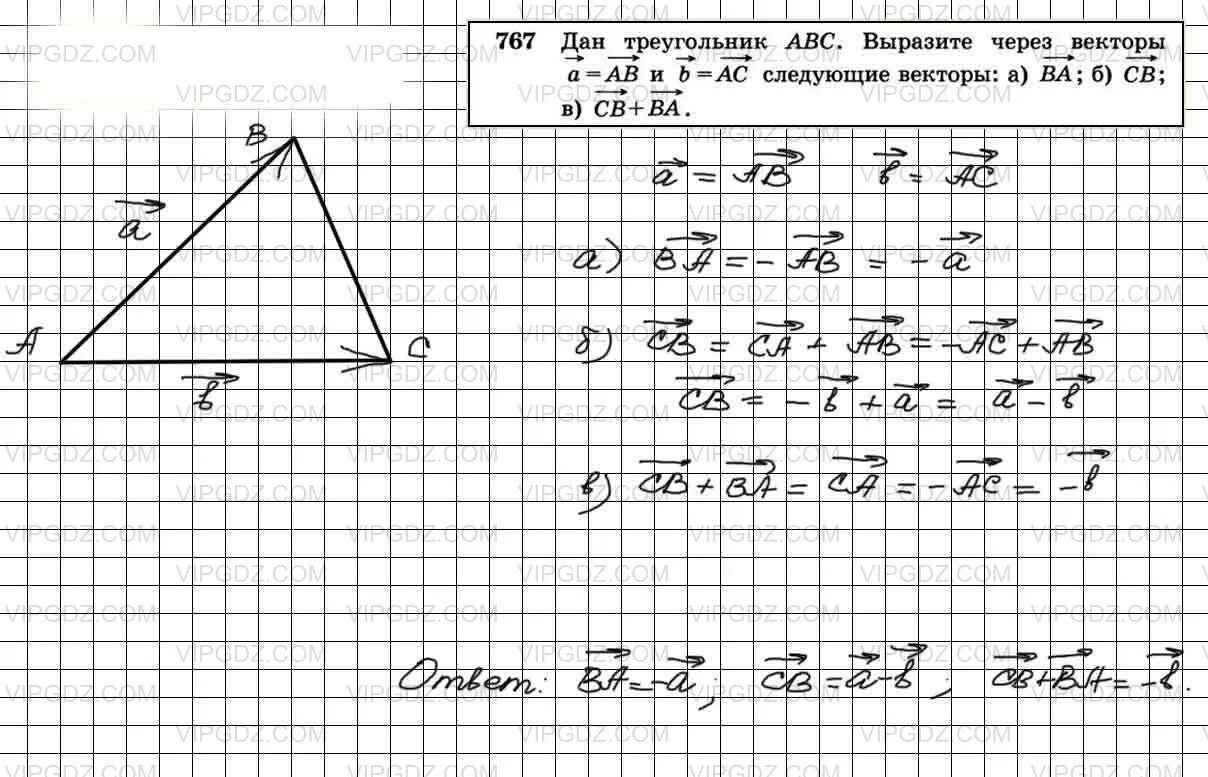 767 Дан треугольник ABC. Выразите через векторы
a⃗ = AB⃗ и b⃗ = AC⃗ следующие векторы: а) BA⃗; б) CB⃗;
в) CB⃗ + BA⃗.
B
a⃗
A
C
b⃗
a⃗ = AB⃗ b⃗ = AC⃗
а) BA⃗ = - AB⃗ = - a⃗
б) CB⃗ = CA⃗ + AB⃗ = -AC⃗ + AB⃗
CB⃗ = - b⃗ + a⃗ = a⃗ - b⃗
в) CB⃗ + BA⃗ = CA⃗ = - AC⃗ = -b⃗
Ответ: BA⃗ = -a⃗ ; CB⃗ = a⃗ - b⃗ ; CB⃗ + BA⃗ = -b⃗.
VIPGDZ.COM